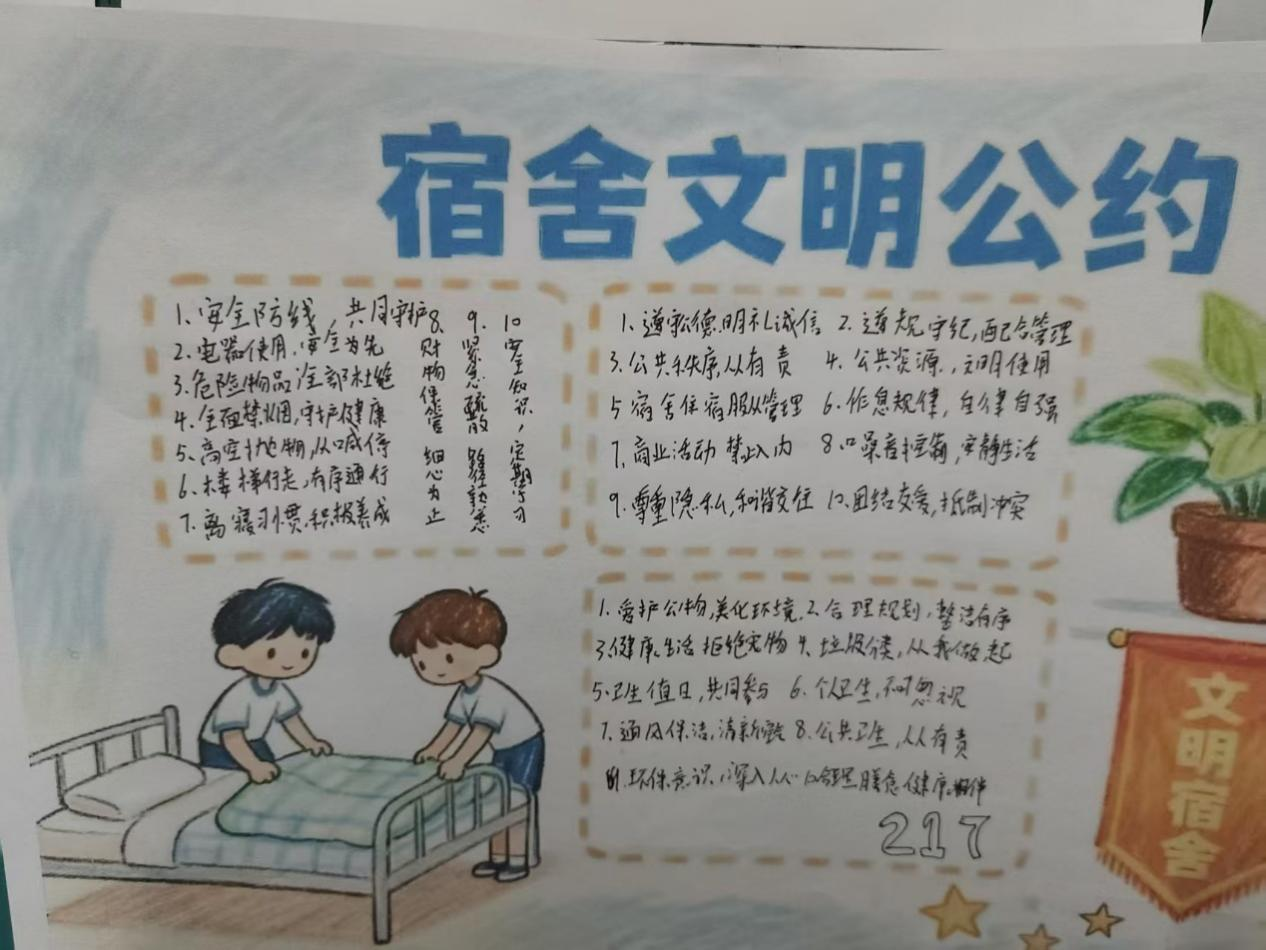 宿舍文明公约
1、安全防线，共同守护
2、电器使用、安全为先
3、危险物品全部杜绝
4、全面禁烟，守护健康
5、高空抛物，从喊停
6、楼梯行走，有序通行
7、离寝习惯，积极养成
8、财物保管 细心为止
9、紧急疏散 路径熟悉
10 安全知识，定期学习
1、遵守公德，明礼诚信 2、遵规守纪，配合管理
3、公共秩序，从有责 4、公共资源，文明使用
5 宿舍住宿服从管理 6、作息规律，自律自强
7、商业活动 禁止入内 8、噪音控制，安静生活
9、尊重隐私，和谐交往 10、团结友爱，抵制冲突
1、爱护公物，美化环境、2、合理规划，整洁有序
3、健康生活 拒绝宠物 4、垃圾，从我做起
5、卫生值日，共同参与 6、个卫生，不可忽视
7、通风保洁，清新 8、公共卫生，人人有责
9、环保意识，深入人心 10 合理膳食 健康相伴
217
文明宿舍